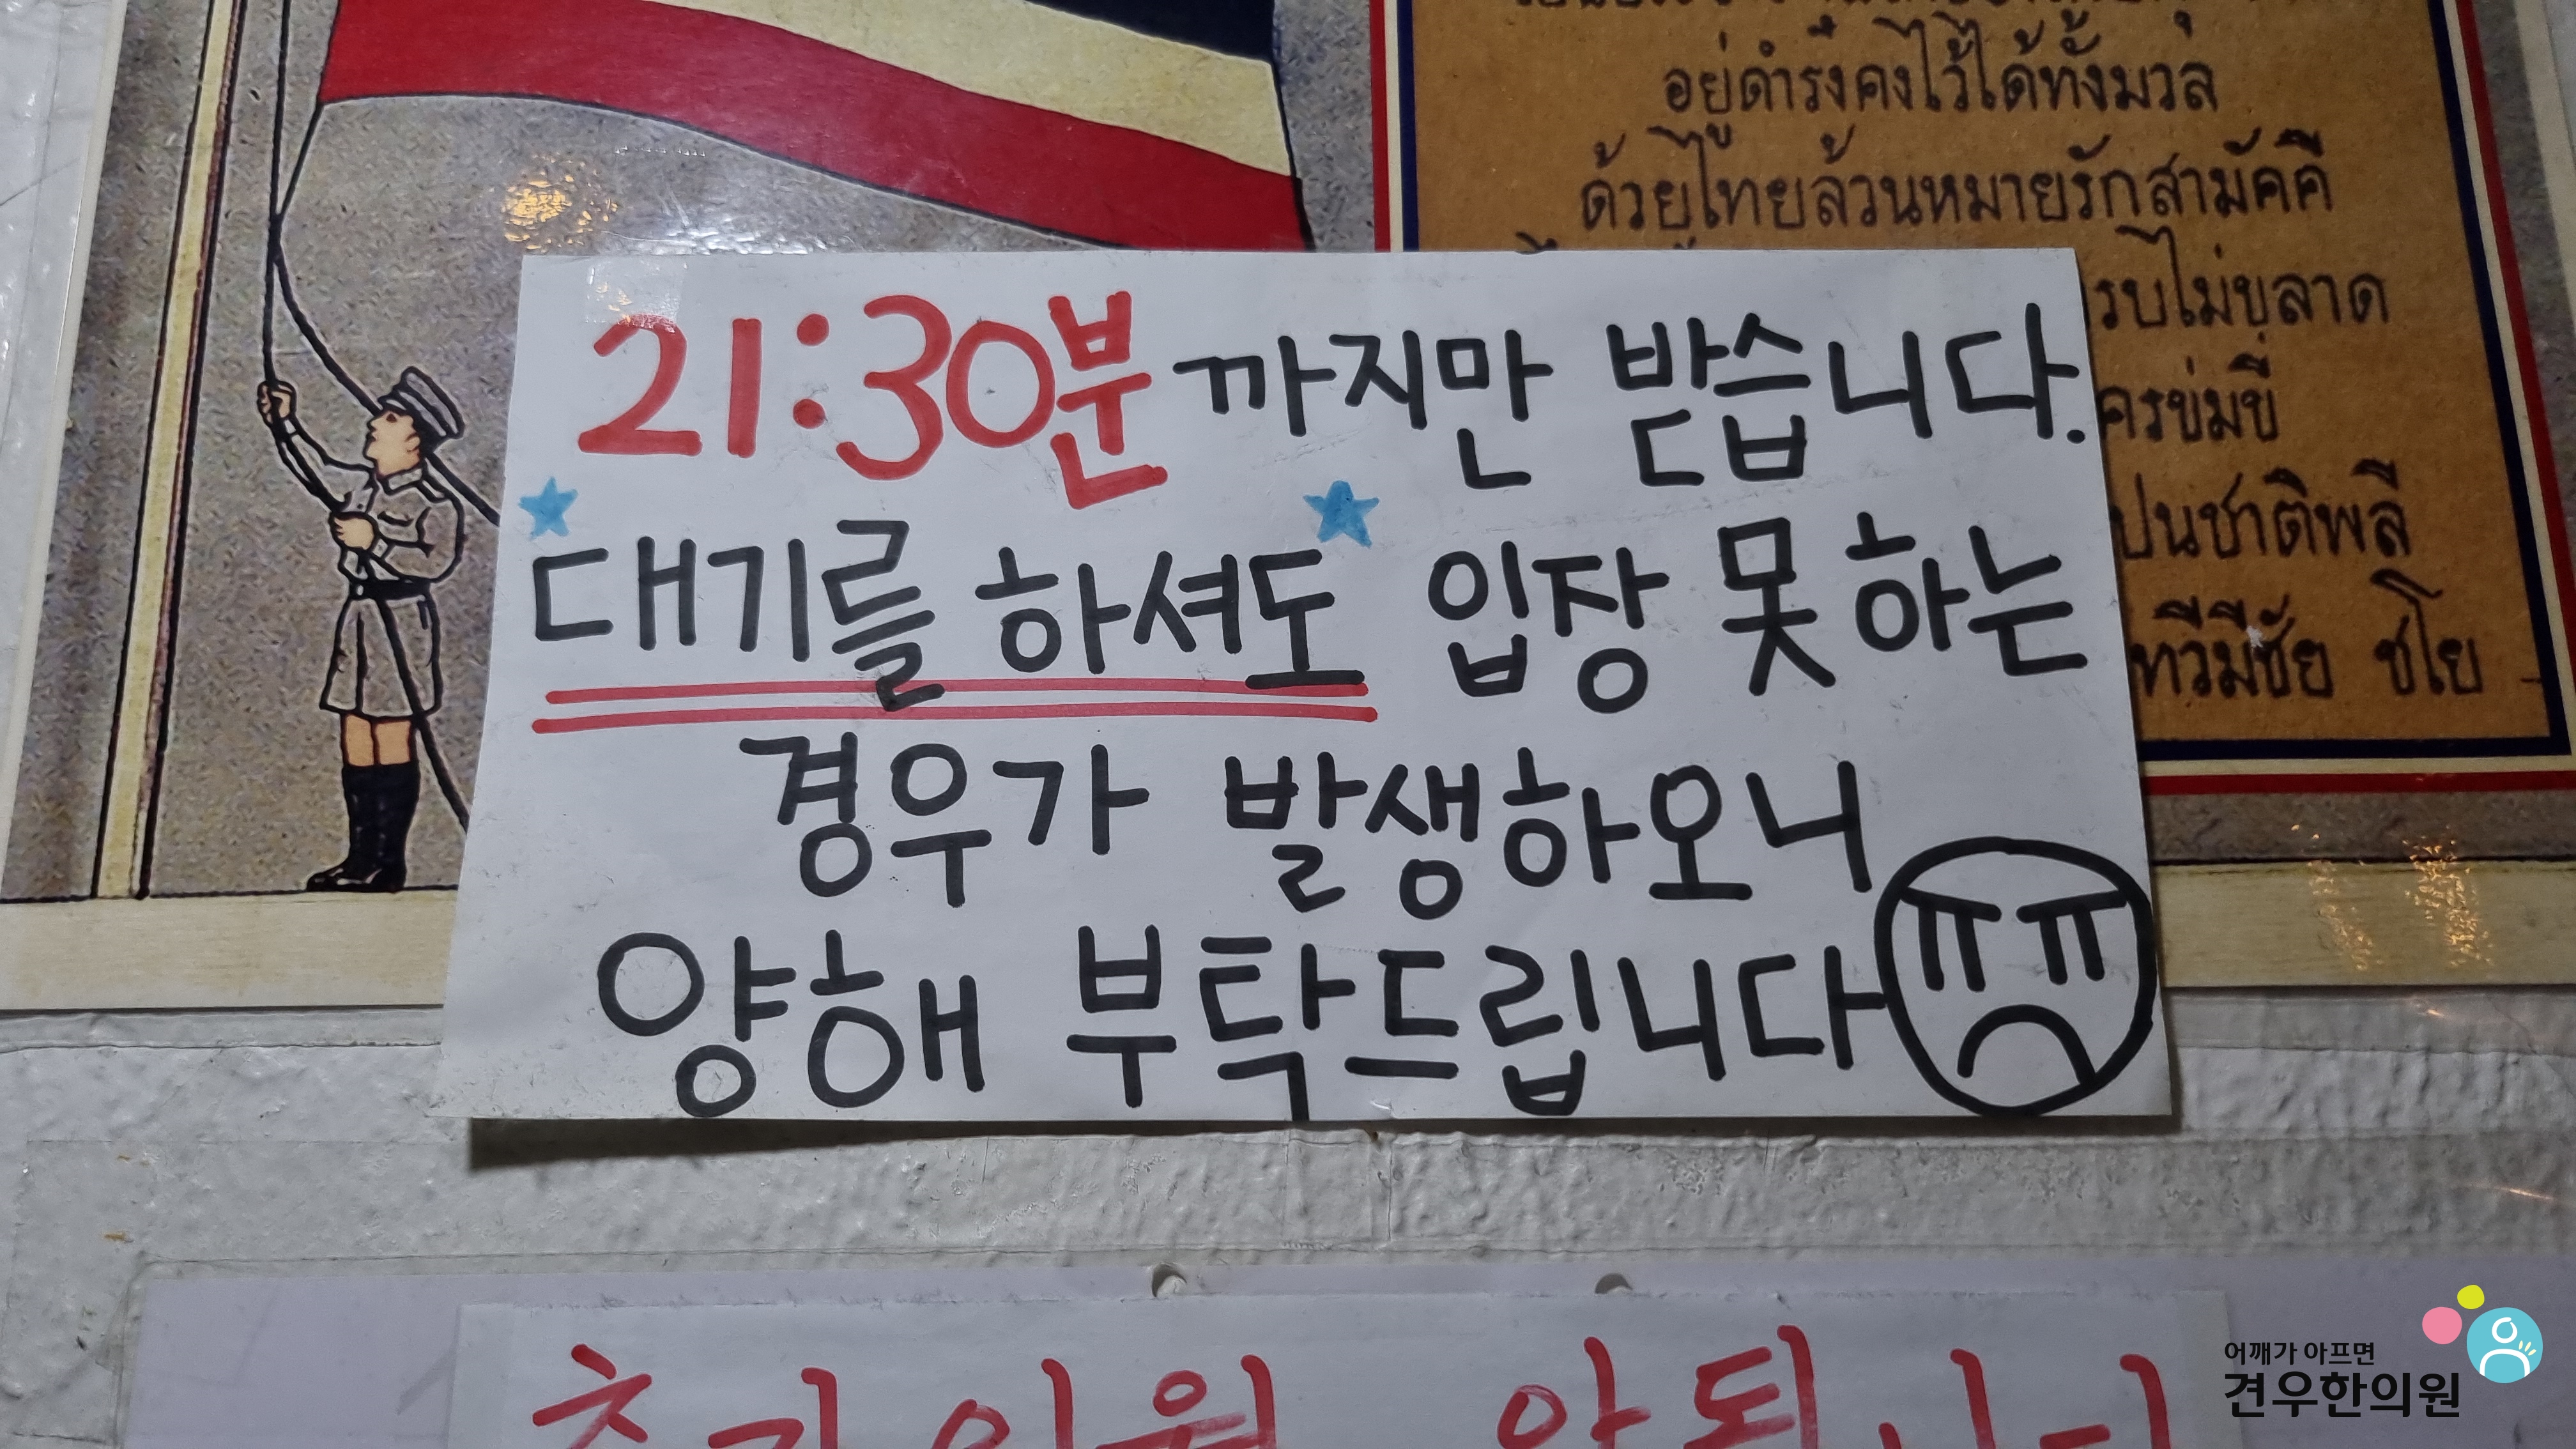 อยู่ดำรงคงไว้ได้ทั้งมวล
ด้วยไทยล้วนหมายรักสามัคคี
รบไม่ขลาด
ครข่มขี่
ปนชาติพลี
ทวีมีชัย ชโย
21:30분까지만 받습니다.
대기를 하셔도 입장 못하는
경우가 발생하오니
양해 부탁드립니다
추가인원 안됩니다
어깨가 아프면
견우한의원